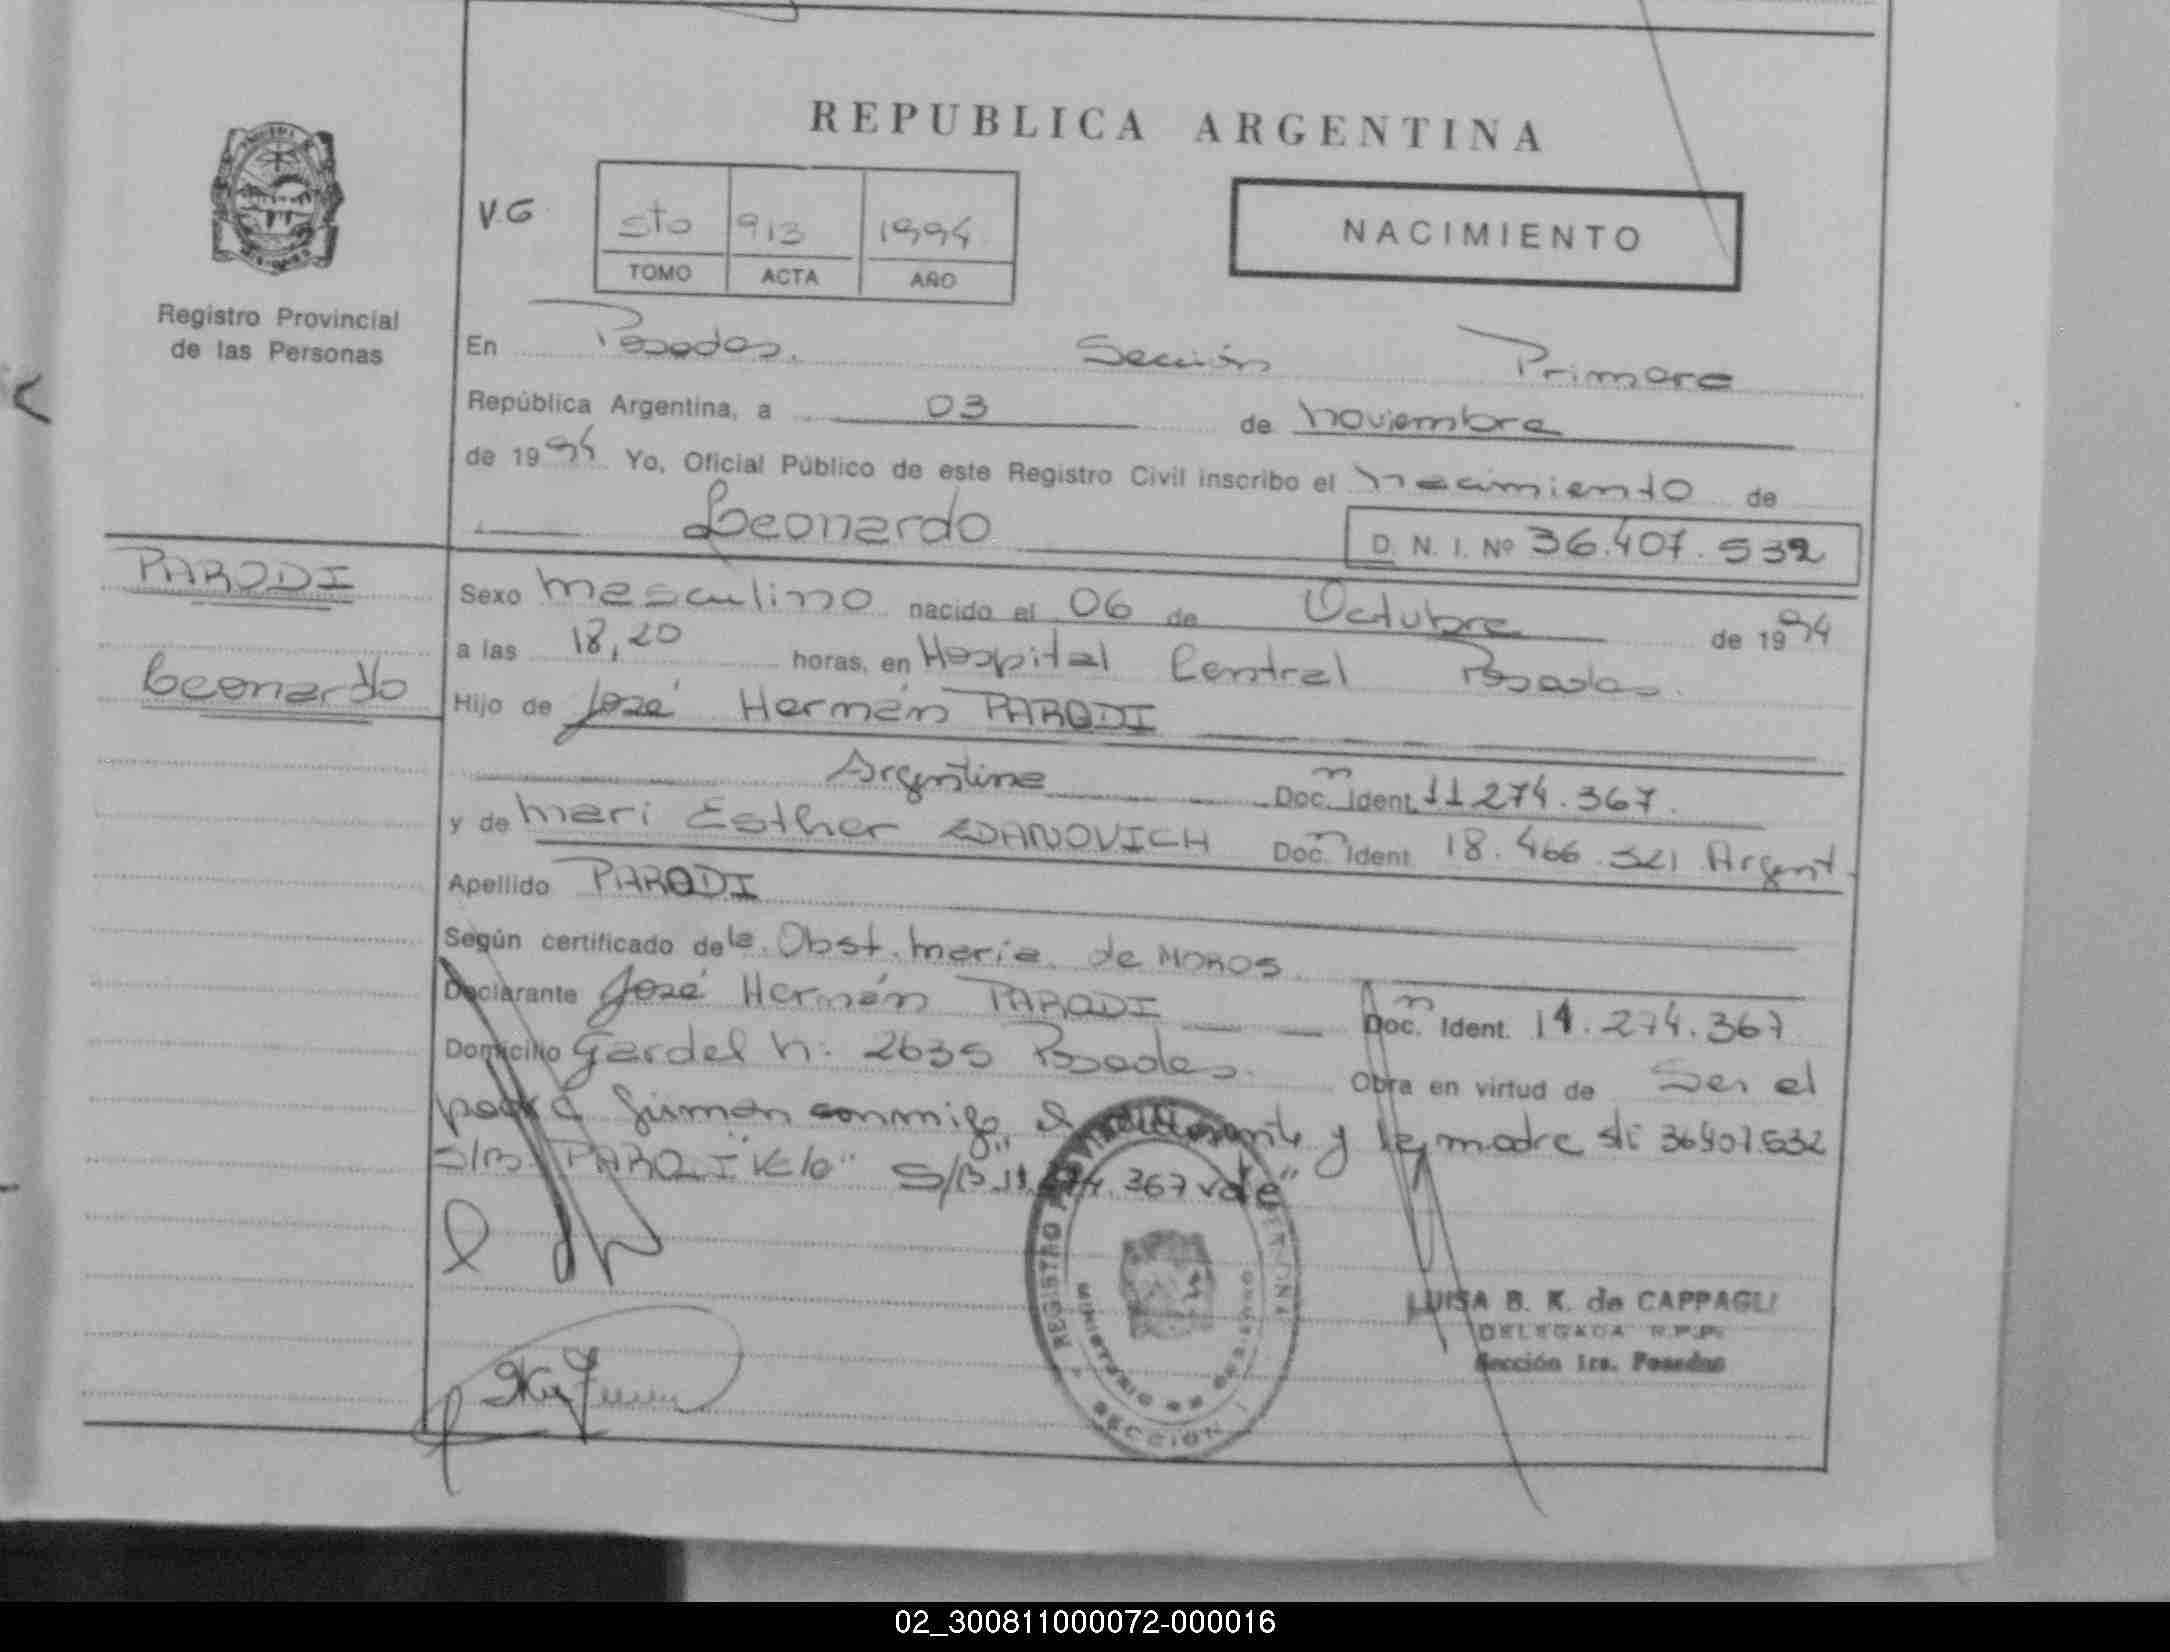 REPUBLICA ARGENTINA
V.G
5to 913 1994
TOMO ACTA AÑO
NACIMIENTO
Registro Provincial
de las Personas
En Posadas. Sección Primera
República Argentina, a 03 de noviembre
de 1994 Yo, Oficial Público de este Registro Civil inscribo el nacimiento de
Leonardo D. N. I. Nº 36.407.532
PARODI
Leonardo
Sexo masculino nacido el 06 de Octubre de 1994
a las 18,20 horas, en Hospital Central Posadas.
Hijo de José Hernán PARODI
Argentino Doc. n Ident. 11 274.367.
y de Mari Esther ZDANOVICH Doc. n Ident. 18.466.321 Argent.
Apellido PARODI
Según certificado de la Obst. Maria de MOROS.
Declarante José Hernán PARODI Doc. n Ident. 11.274.367
Domicilio Gardel n. 2635 Posadas. Obra en virtud de Ser el
padre firman conmigo el declarante y la madre 36407532
S/B "PARODI S/B 11.274.367 vale"
REGISTRO
MINISTERIO DE GOBIERNO
SECCION 1
LUISA B. K. de CAPPAGLI
DELEGADA R.P.P.
Sección 1ra. Posadas
02_300811000072-000016